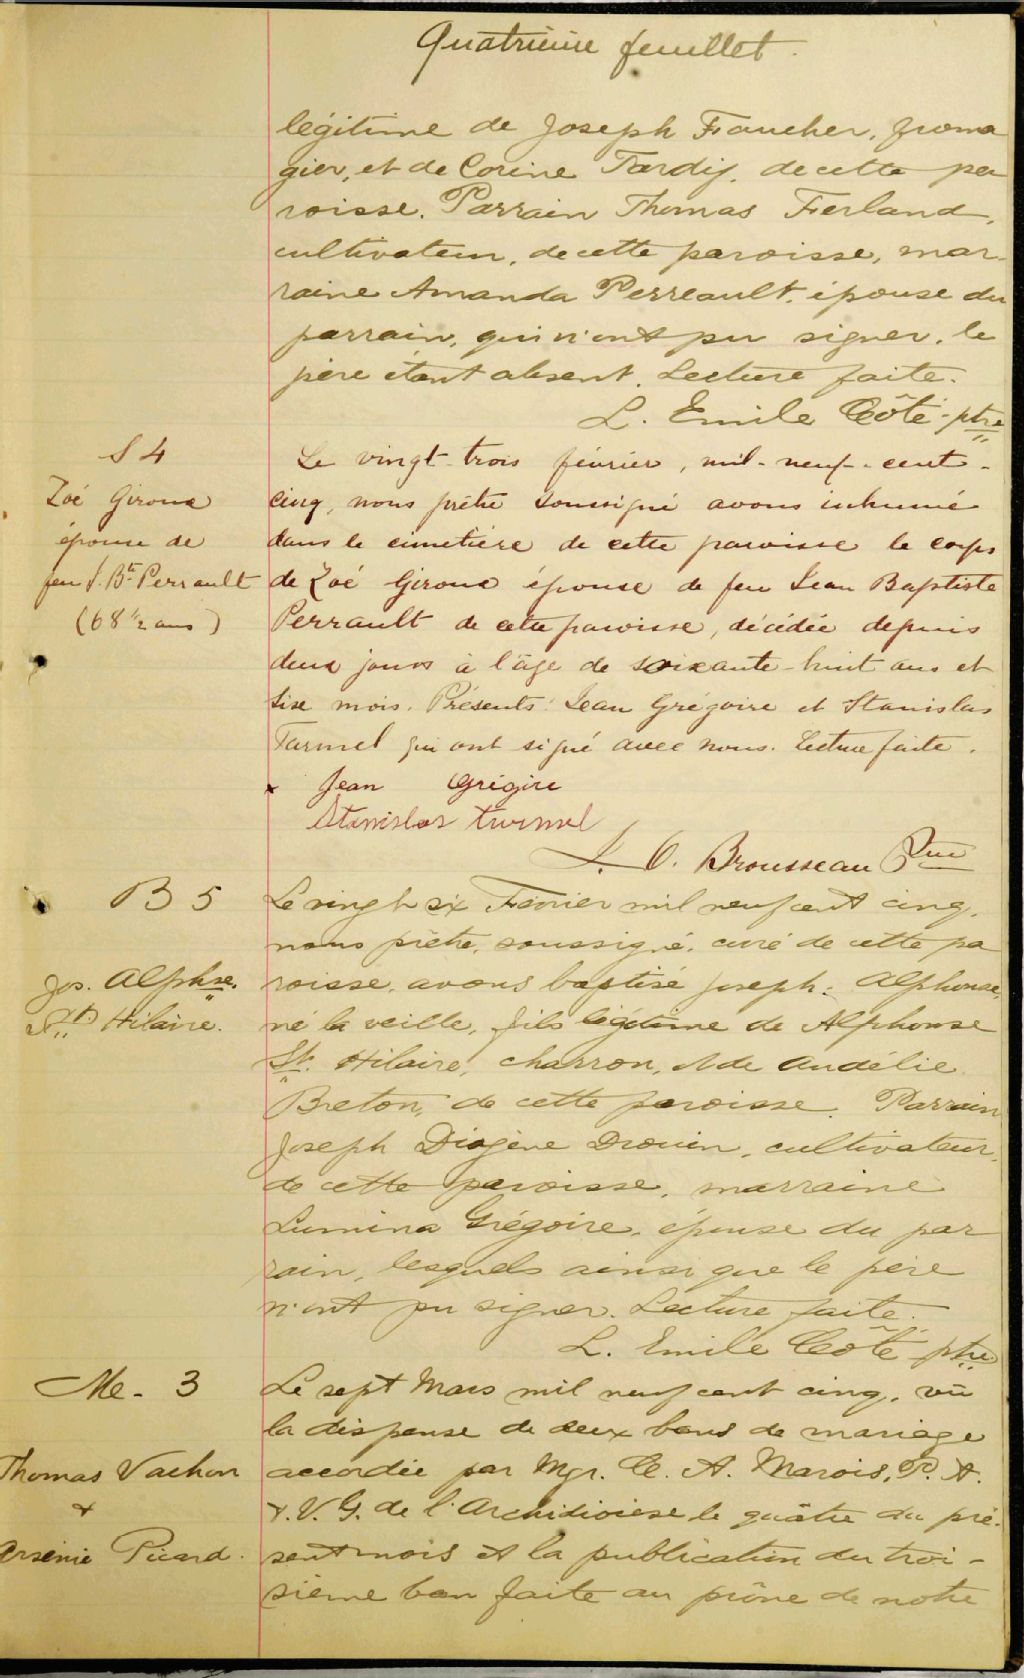 Quatrième feuillet.
légitime de Joseph Faucher, froma
gier, et de Corine Tardif, de cette pa
roisse. Parrain Thomas Ferland,
cultivateur, de cette paroisse, mar-
raine Amanda Perreault, épouse du
parrain, qui n'ont pu signer, le
père étant absent. Lecture faite.
L. Emile Côté - ptre
S 4
Zoé Giroux
épouse de
feu J. Bte Perrault
(68 1/2 ans)
Le vingt-trois février, mil-neuf-cent-
cinq, nous prêtre soussigné avons inhumé
dans le cimetière de cette paroisse le corps
de Zoé Giroux épouse de feu Jean Baptiste
Perrault de cette paroisse, décédée depuis
deux jours à l'âge de soixante-huit ans et
six mois. Présents: Jean Grégoire et Stanislas
Turmel qui ont signé avec nous. Lecture faite.
x Jean Grégire
Stanislas turmel
J. O. Brousseau Ptre
B 5
Jos. Alphse.
St. Hilaire.
Le vingt six Février mil neuf cent cinq,
nous prêtre, soussigné, curé de cette pa
roisse, avons baptisé Joseph: Alphonse,
né la veille, fils légitime de Alphonse
St. Hilaire, charron, et de Audélie
Breton, de cette paroisse. Parrain
Joseph Diogène Drouin, cultivateur,
de cette paroisse, marraine
Lumina Grégoire, épouse du par
rain, lesquels ainsi que le père
n'ont pu signer. Lecture faite.
L. Emile Côté ptre
Me - 3
Thomas Vachon
&
Arsénie Picard.
Le sept Mars mil neuf cent cinq, vu
la dispense de deux bans de mariage
accordée par Mgr. C. A. Marois, P. A.
&. V. G. de l'Archidiocèse le quatre du pré-
sent mois et la publication du troi-
sième ban faite au prône de notre